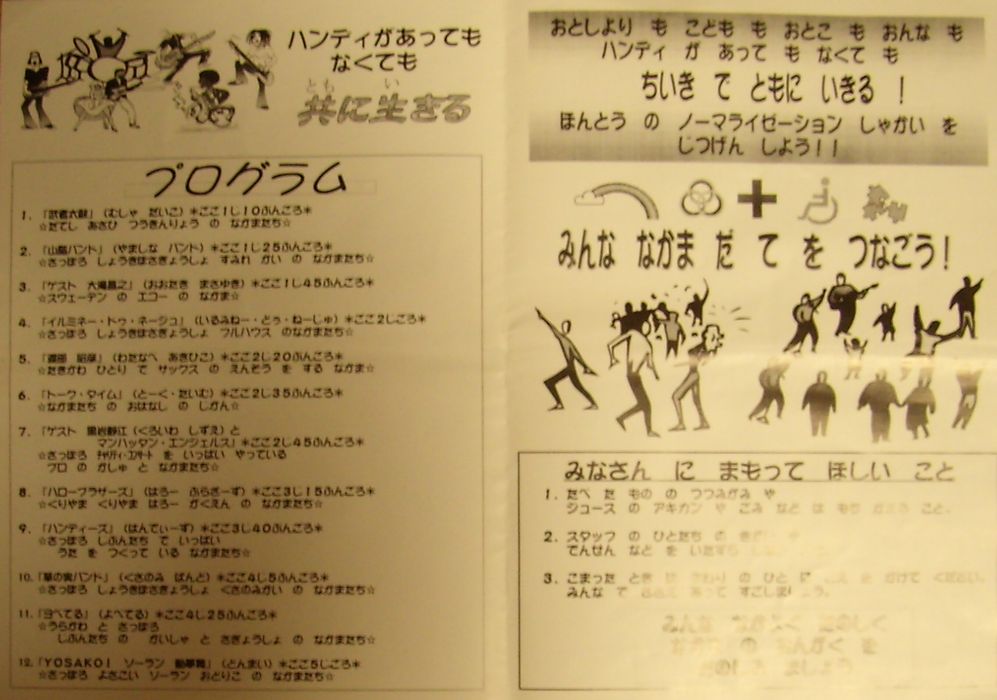 ハンディがあっても
なくても
とも い
共に生きる
プログラム
1. 「武者太鼓」(むしゃ だいこ)*ごご1じ10ぷんころ*
☆だてし あさひ つうきんりょう の なかまたち☆
2. 「山品バンド」(やましな バンド)*ごご1じ25ふんころ*
☆さっぽろ しょうきぼさぎょうしょ すみれ かい の なかまたち☆
3. 「ゲスト 大滝昌之」(おおたき まさゆき)*ごご1じ45ふんころ*
☆スウェーデン の エコー の なかま☆
4. 「イルミネー・ドゥ・ネージュ」(いるみねー・どぅ・ねーじゅ)*ごご2じころ*
☆さっぽろ しょうきぼさぎょうしょ フルハウス のなかまたち☆
5. (わたなべ あきひこ)*ごご2じ20ぷんころ*
☆たきかわ ひとり で サックス の えんそう を する なかま☆
6. 「トーク・タイム」(とーく・たいむ)*ごご2じ35ふんころ*
☆なかまたち の おはなし の じかん☆
7. 「ゲスト 黒岩静江(くろいわ しずえ)と
マンハッタン・エンジェルス」*ごご2じ45ふんころ*
☆さっぽろ チャリティ・コンサート を いっぱい やっている
プロ の かしゅ と なかまたち☆
8. 「ハローブラザーズ」(はろー ぶらざーず)*ごご3じ15ふんころ*
☆くりやま くりやま はろー がくえん の なかまたち☆
9. 「ハンディーズ」(はんでぃーず)*ごご3じ40ぷんころ*
☆さっぽろ じぶんたち で いっぱい
うた を つくって いる なかまたち☆
10. 「草の実バンド」(くさのみ ばんど)*ごご4じ5ふんころ*
☆さっぽろ しょうきぼさぎょうしょ くさのみかい の なかまたち☆
11. 「ヨベてる」(よべてる)*ごご4じ25ふんころ*
☆うらかわ と さっぽろ
じぶんたち の かいしゃ と さぎょうしょ の なかまたち☆
12. 「YOSAKOI ソーラン (とんまい)*ごご5じころ*
☆さっぽろ よさこい ソーラン おどりこ の なかまたち☆
おとしより も こども も おとこ も おんな も
ハンディ が あって も なくて も
ちいき で ともに いきる !
ほんとう の ノーマライゼーション しゃかい を
じつげん しよう!!
みんな なかま だ て を つなごう!
みなさん に まもって ほしい こと
1. たべ た もの の つつみがみ や
ジュース の アキカン や ごみ など は もち かえる こと。
2. スタッフ の ひとたち の
でんせん など を いたずら
3. こまった とき は の ひと に かけて ください。
みんな で あって すごしましょう。
みんな